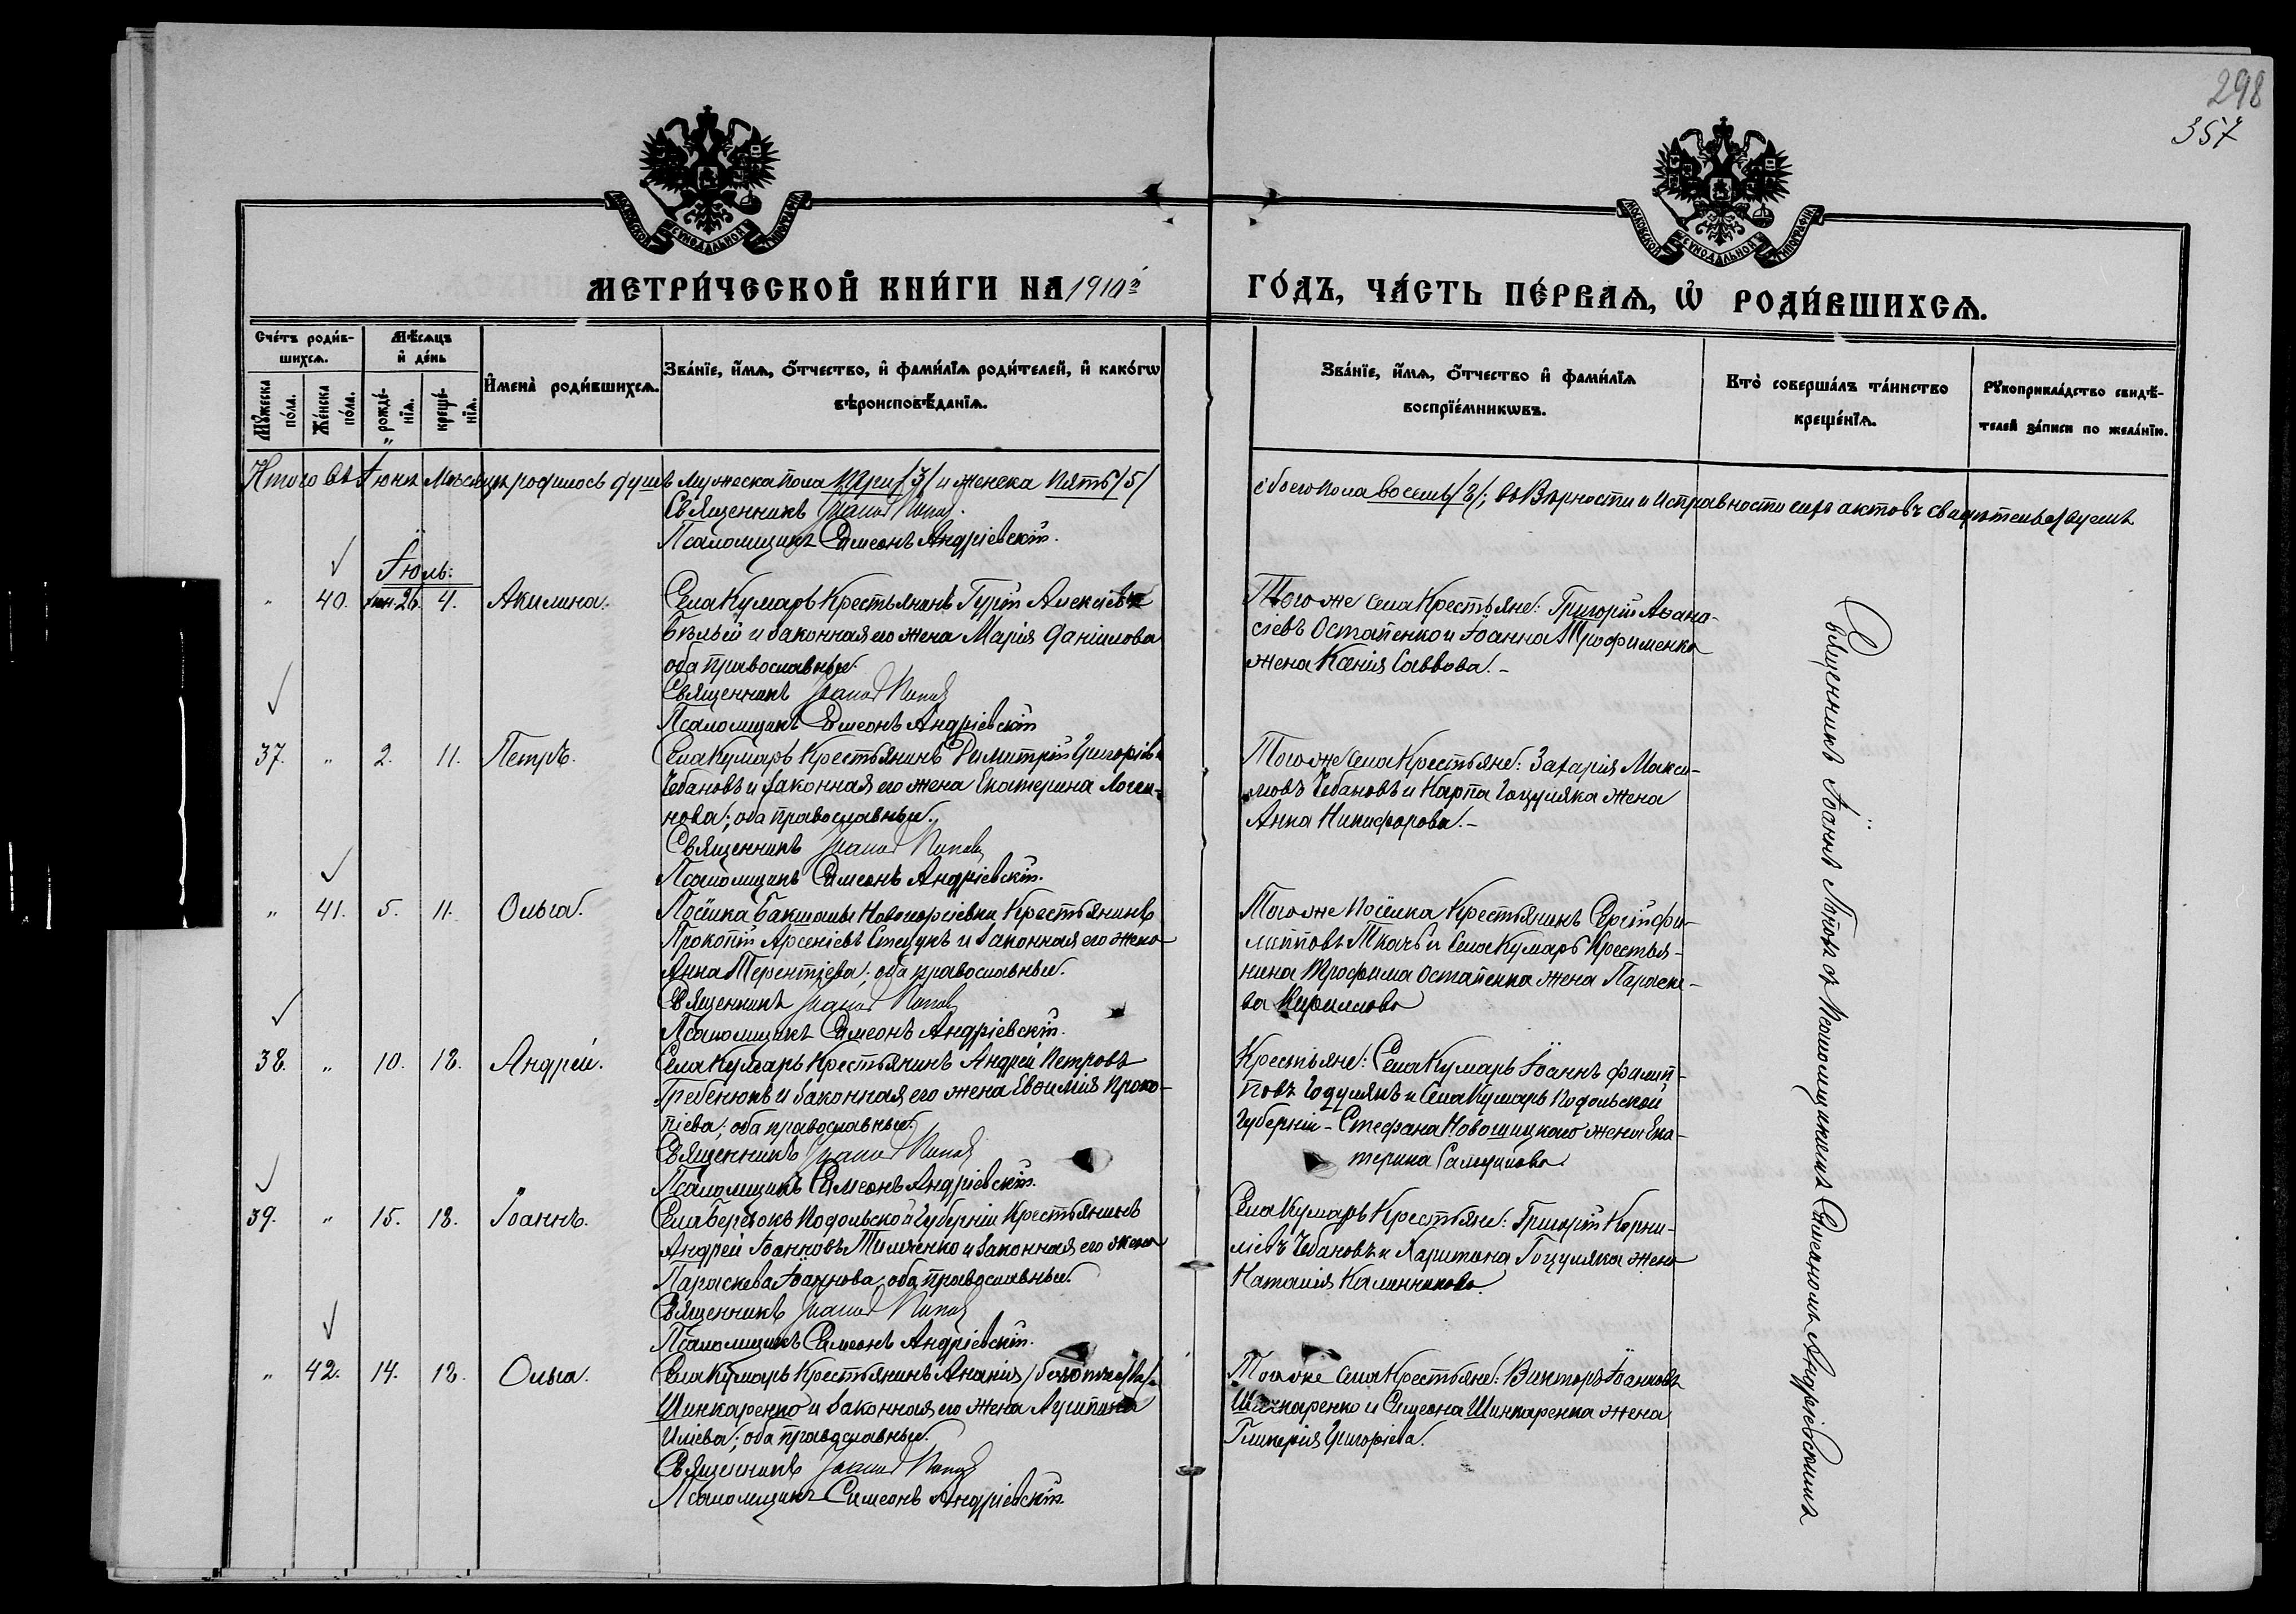 298
357
МОСКОВСКОЙ СѴНОДАЛЬНОЙ ТИПОГРАФІИ
МОСКОВСКОЙ СѴНОДАЛЬНОЙ ТИПОГРАФІИ
МЕТРИ́ЧЕСКОЙ КНИ́ГИ НА 1910й
ГО́ДЪ, ЧА́СТЬ ПЕ́РВАѦ, Ѽ РОДИ́ВШИХСѦ.
Сче́тъ роди́в-
шихсѧ.
Мѣ́сѧцъ
и҆ де́нь
Мꙋ́жеска по́ла.
Же́нска по́ла.
рожде́-нїѧ.
креще́-нїѧ.
И҆мена̀ роди́вшихсѧ.
Зва́нїе, и҆́мѧ, ѻ҆́тчество, и҆ фами́лїѧ роди́телей, и҆ како́гѡ
вѣроисповѣ́данїѧ.
Зва́нїе, и҆́мѧ, ѻ҆́тчество и҆ фами́лїѧ
воспрїе́мникѡвъ.
Кто̀ соверша́лъ та́инство
креще́нїѧ.
Рꙋкоприкла́дство свидѣ́-
телей за́писи по жела́нїю.
Итого въ Іюнѣ Мѣсяцѣ родилось душъ мужеска пола три /3/ и женска пять /5/
обоего пола восемь /8/; въ Вѣрности и Исправности сихъ актовъ свидѣтельствуемъ
Священникъ Іоаннъ Попов
Псаломщикъ Симеонъ Андріевскій.
Іюль:
" 40. Іюн. 26. 4. Акилина.
Села Кумаръ Крестьянинъ Гурій Алексіевъ
Бѣлый и законная его жена Марія Даніилова
оба православные.
Священникъ Іоаннъ Попов
Псаломщикъ Симеонъ Андріевскій
Того же села Крестьяне: Григорій Аѳана-
сіевъ Остапенко и Іоанна Трофименка
жена Ксенія Саввова. -
37. " 2. 11. Петръ.
Села Кумаръ Крестьянинъ Димитрій Григоріевъ
Чебановъ и законная его жена Екатерина Логги-
нова; оба православные.
Священникъ Іоаннъ Попов
Псаломщикъ Симеонъ Андріевскій.
Того же Села Крестьяне: Захарія Макси-
мовъ Чебановъ и Карпа Гоцуляка жена
Анна Никифорова. -
" 41. 5. 11. Ольга.
Посёлка Бакшалы Новогоріевки Крестьянинъ
Прокопій Арсеніевъ Стецукъ и законная его жена
Анна Терентіева; оба православные.
Священникъ Іоаннъ Попов
Псаломщикъ Симеонъ Андріевскій.
Того же посёлка Крестьянинъ Сергій Фи-
липповъ Ткачъ и Села Кумаръ Крестья-
нина Трофима Остапенка жена Параске-
ва Кириллова
38. " 10. 18. Андрей.
Села Кумаръ Крестьянинъ Андрей Петровъ
Гребенюкъ и законная его жена Евѳимія Проко-
піева; оба православные.
Священникъ Іоаннъ Попов
Псаломщикъ Симеонъ Андріевскій.
Крестьяне: Села Кумаръ Іоаннъ Филип-
повъ Годулякъ и Села Кумаръ Подольской
Губерніи - Стефана Новошицкаго жена Ека-
терина Самуилова.
39. " 15. 18. Іоаннъ.
Села Березокъ Подольской Губерніи Крестьянинъ
Андрей Іоанновъ Тимченко и законная его жена
Параскева Іоаннова, оба православные.
Священникъ Іоаннъ Попов
Псаломщикъ Симеонъ Андріевскій.
Села Кумаръ Крестьяне: Григорій Корни-
ліевъ Чебановъ и Харитона Гоцуляка жена
Наталія Калинникова.
" 42. 14. 18. Ольга.
Села Кумаръ Крестьянинъ Ананія
Шинкаренко и законная его жена Агрипина
Иліева; оба православные.
Священникъ Іоаннъ Попов
Псаломщикъ Симеонъ Андріевскій.
Того же Села Крестьяне: Викторъ Іоанновъ
Шинкаренко и Симеона Шинкаренка жена
Гликерія Григоріева.
Священникъ Іоаннъ Поповъ съ Псаломщикомъ Симеономъ Андріевскимъ